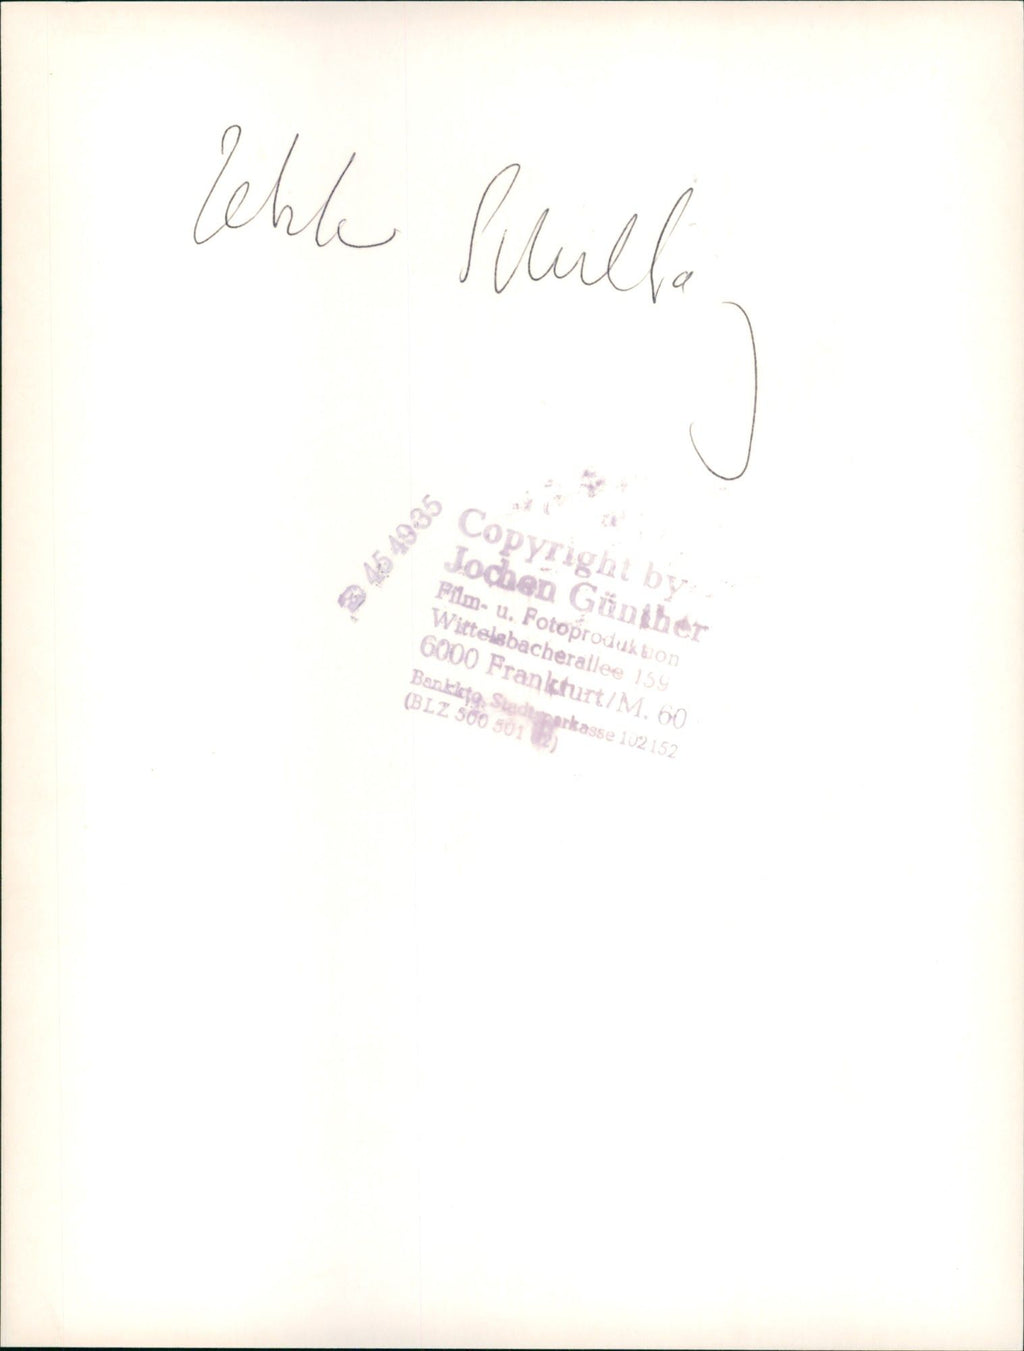 45 49 35
Copyright by
Jochen Günther
Film- u. Fotoproduktion
Wittelsbacherallee 159
6000 Frankfurt/M. 60
Bankkto. Stadtsparkasse 102152
(BLZ 500 501 02)